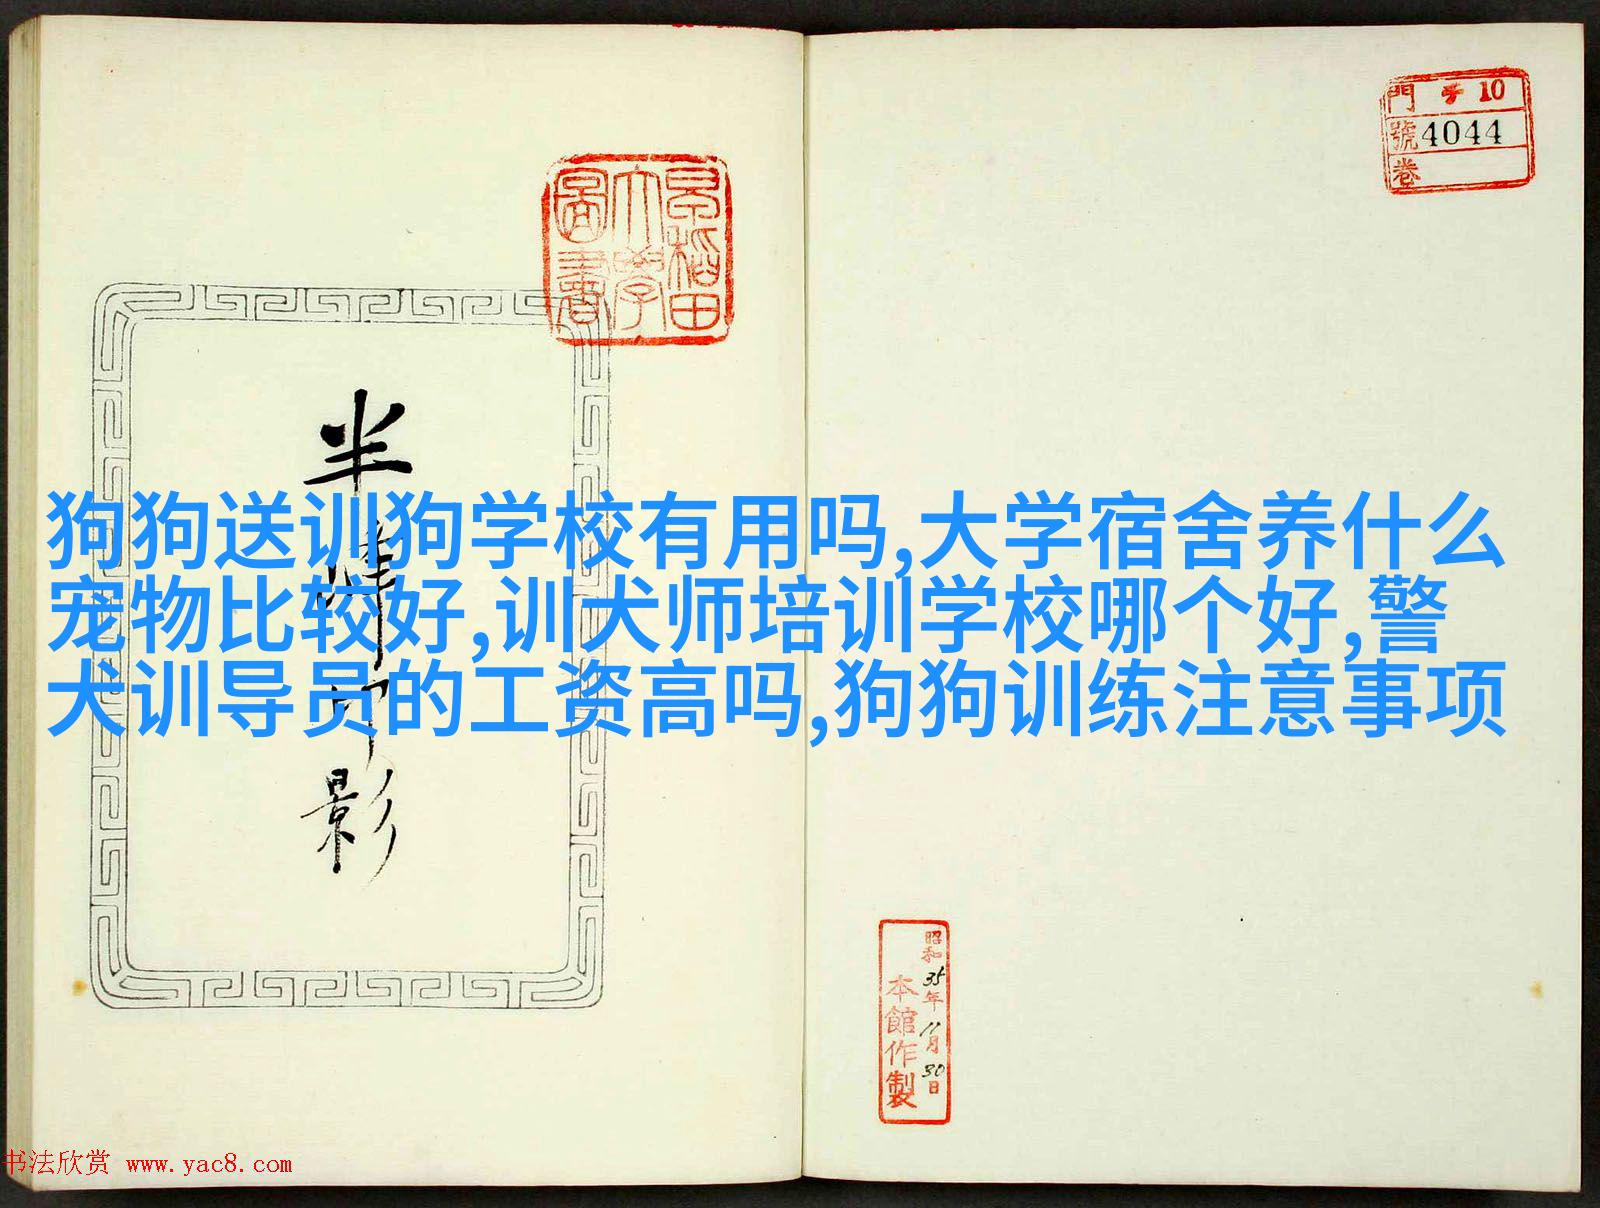 門 10
號 4044
卷
早稻田
大學
圖書
狗狗送训狗学校有用吗,大学宿舍养什么
宠物比较好,训犬师培训学校哪个好,警
犬训导员的工资高吗,狗狗训练注意事项
半
影
昭和35年11月30日
本館作製
书法欣赏 www.yac8.com